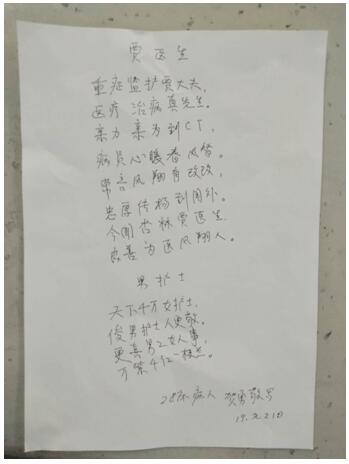 贾医生
重症监护贾大夫,
医疗治病真先生。
亲力亲为到CT,
病员心暖春风
常言风翔有改改,
忠厚传扬到国外。
今闻杏林贾医生
良善为医风翔人。
男护士
天下千万女护士,
俊男护士人更敬。
更喜男之女人事,
万绿千红一枝
28床病人 敬写
19.